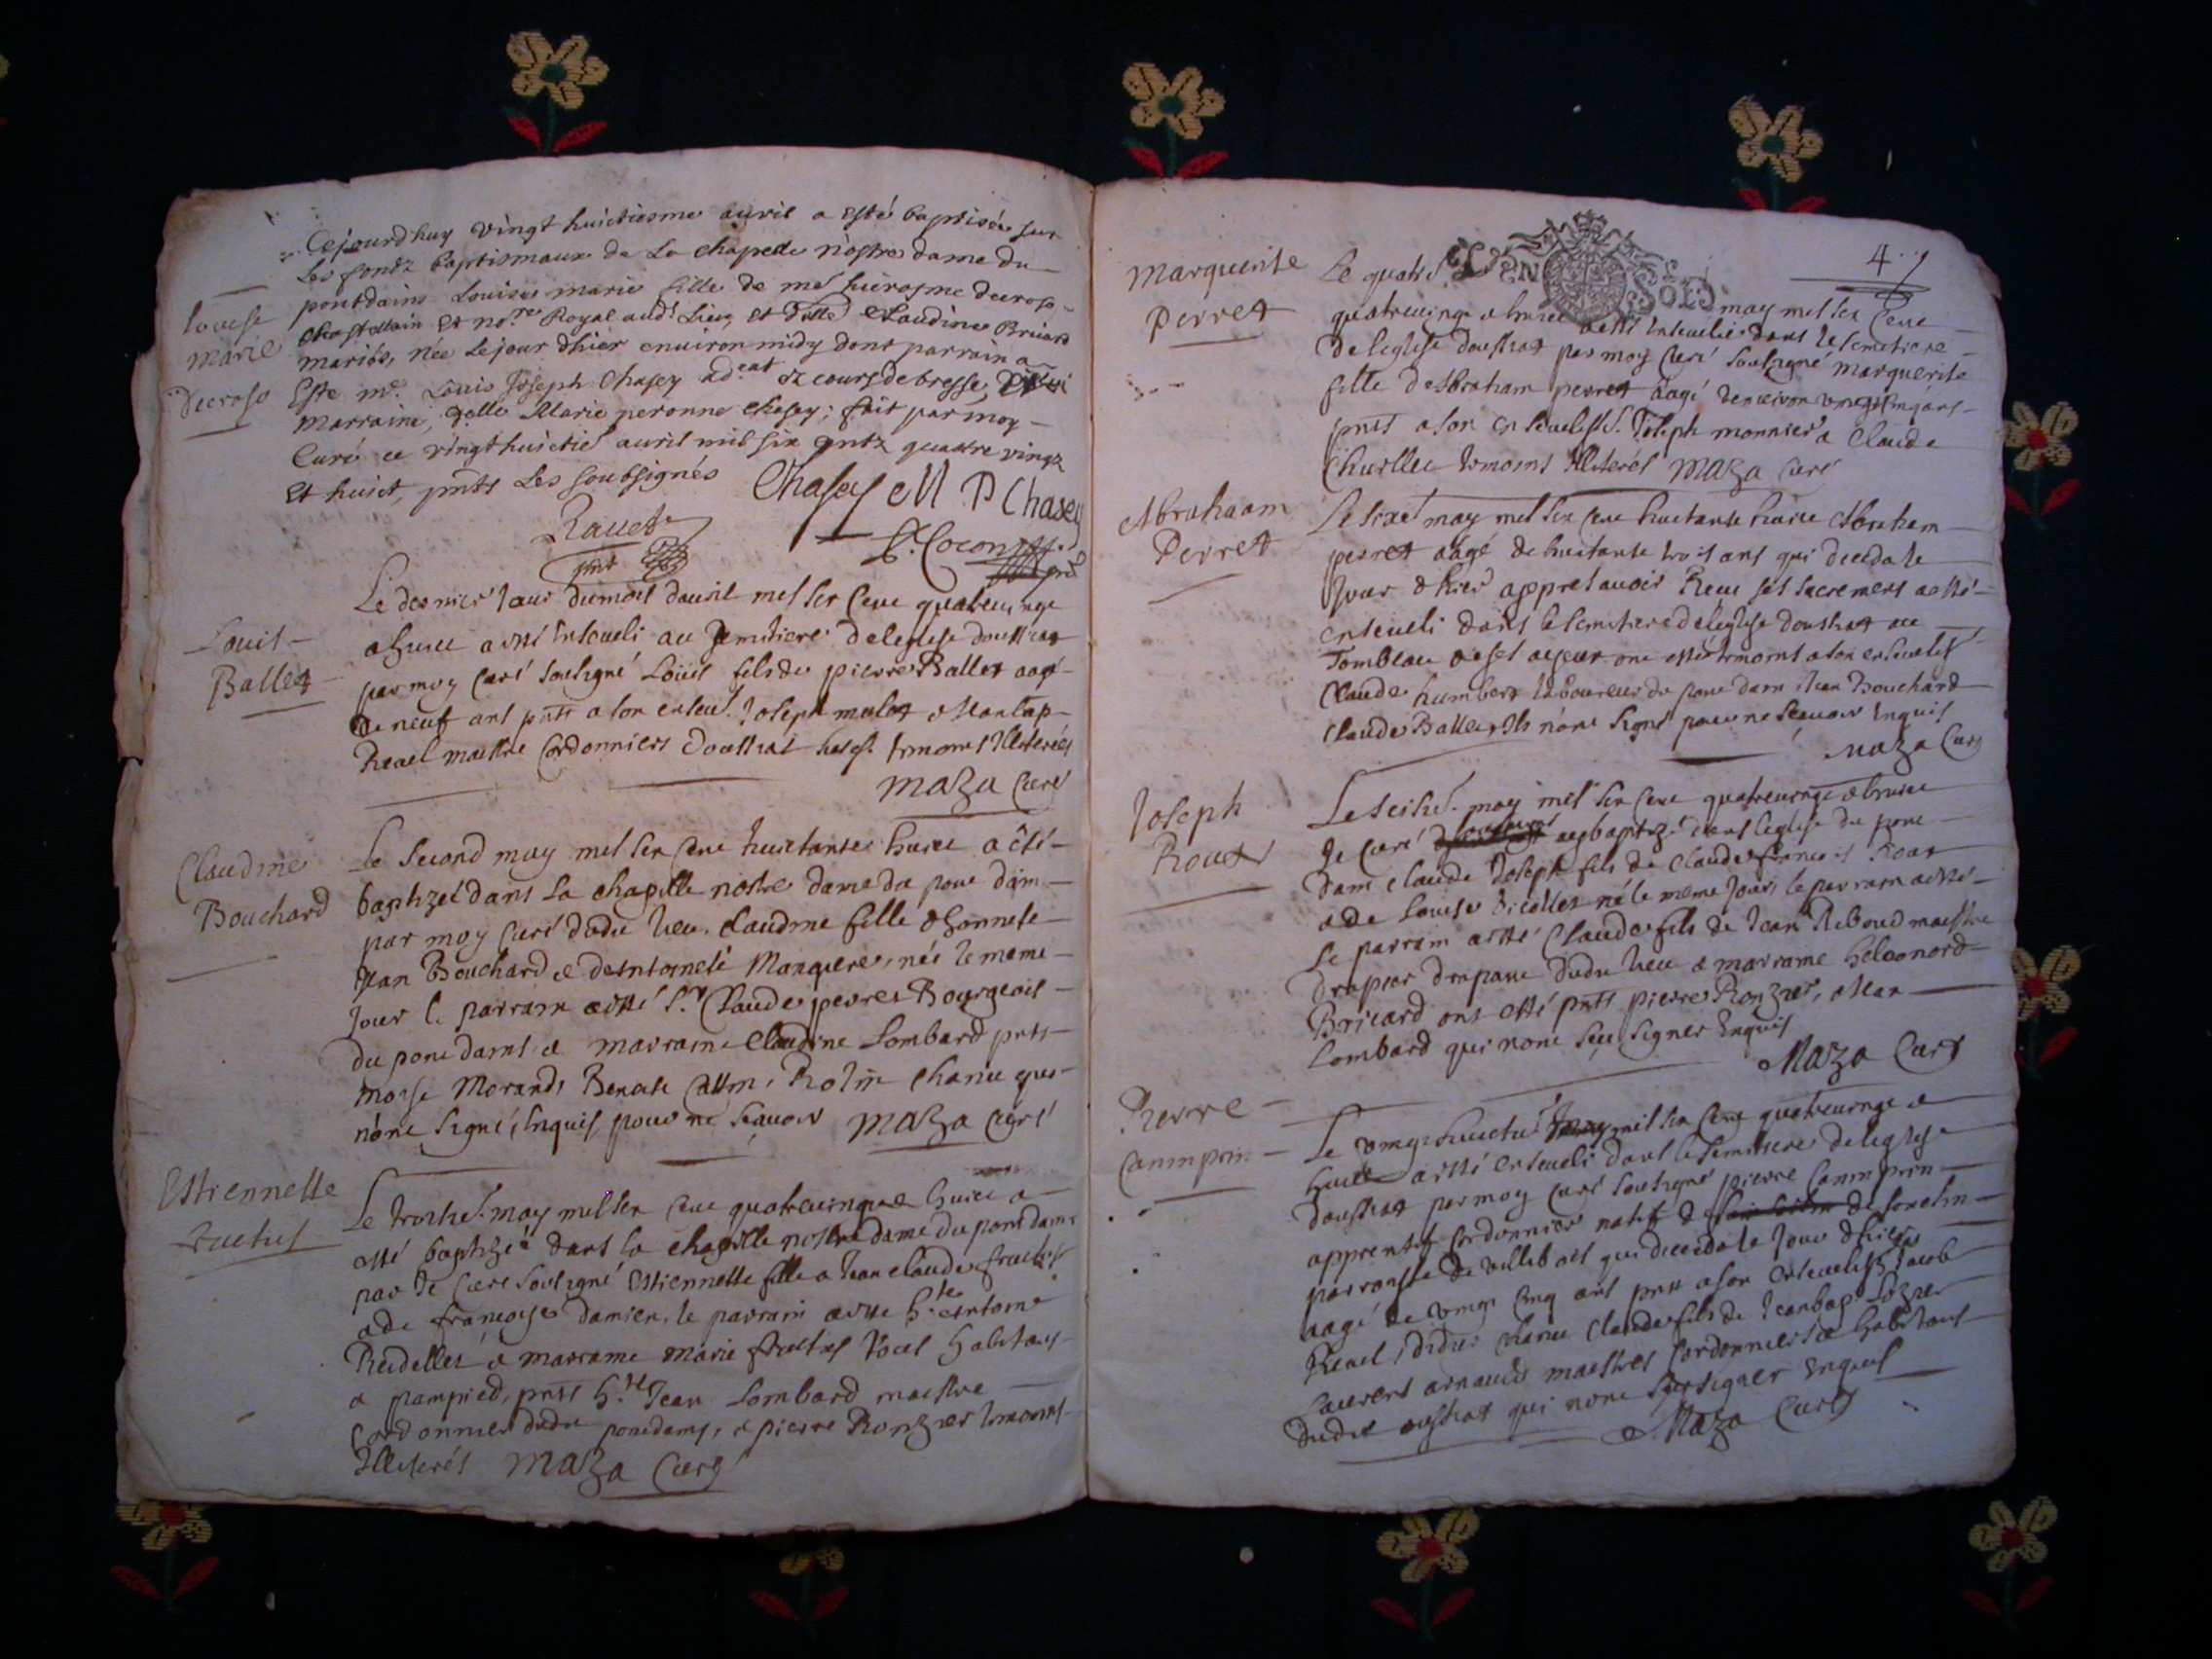 Cejourdhuy vingt huictiesme auril a esté baptisée sur
Les fondz baptismaux de La chapelle nostre dame du
pontdains Louise marie fille de me hierosme decroso
chastellain et nore Royal audt Lieu, et dlle Claudine Bricard
mariés, née Lejour dhier enuiron midy dont parrain a
Este mr Louis Joseph Chasey adcat ez cours de bresse,
Marraine, delle Marie peronne chasey; fait par moy
Curé ce vingthuictie auril mil six centz quattre vingz
Et huict, pnts Les soubsignés
Louise
marie
decroso
Chasey M P Chasey
Rauet
pnt
Louis
Ballet
Le dernier Jour du mois dauril mil six cent quatrevingt
& huict a esté Enseueli au semitiere de leglise doustrat
par moy Curé soubsigné Loüis fils de pierre Ballet aagé
de neuf ans pnts a son enseu. Joseph mulot &
maistre Cordonniers doustrat tesmoins Illiterés
Maza Curé
Claudine
Bouchard
Le second may mil six cent huictante huict a été
baptizée dans la chapelle nostre dame du pont dain
par moy Curé dudit lieu. Claudine fille dhonneste
Jean Bouchard & née le meme
Jour le parrain a esté Sr Claude perret Bourgeois
du pont dains & marraine Claudine Lombard pnts
Morand, chanu qui
nont signé, Enquis, pour ne sçauoir Maza Curé
Estiennette
Le troise. may mil six cent quatreuingt & huict a
esté baptizée dans la chapelle nostre dame du pont dains
par Je Curé soubsigné Estiennette fille a Jean claude
& de francoise damien, le parrain a esté hte antoine
& marraine marie tous habitans
a pampied, pnts hte Jean Lombard maistre
Cordonnier dudit pontdains, & pierre Ronzier tesmoins
Illiterés Maza Curé
4
Marguerite
Perret
Le quatre UN SOLS may mil six cent
quatreuingt & huict a esté Enseuelie dans le semetiere
de leglise doustrat par moy Curé soubsigné Marguerite
fille dAbraham perret aagé denuiron vingt cinq ans
pnts a son enseuelisse. Joseph monnier & Claude
tesmoins Illiterés Maza Curé
Abrahaam
Perret
Le sixe may mil six cent huictante huict Abraham
perret aagé de huictante trois ans qui deceda le
Jour dhier appres auoir Receu ses sacremens a esté
enseueli dans le semetiere de leglise doustrat au
Tombeau de ses ayeux ont esté tesmoins a son enseuelisse
Claude humbert laboureur du pont dain, Jean Bouchard
Claude Ballet Ils nont signé pour ne sçauoir Enquis
Maza Curé
Joseph
Rouat
Le seise. may mil six cent quatreuingt & huict
Je Curé ay baptizé dans leglise du pont
dain Claude Joseph fils de Claude francois Rouat
& de Louise né le meme Jour, le parrain a esté
Le parrain a esté Claude fils de Jean Riboud maistre
drapier drapant dudit lieu & marraine heleonord
Bricard ont esté pnts pierre Ronzier, &
Lombard qui nont sçeu signer Enquis
Maza Curé
Pierre
Caninprin
Le vingt huictie may mil six cent quatreuingt &
huict a esté enseueli dans le semitiere de leglise
doustrat par moy Curé soubsigné pierre Caninprin
apprentif Cordonnier natif de
parroisse de villebois qui deceda le Jour dhier
aagé de vingt cinq ans pnts a son enseuelisse Jacob
didier chanu Claude fils de Jean bap.
Laurens arnaud maistres Cordonniers & habitans
dudit oustrat qui nont sçeu signer Enquis
Maza Curé